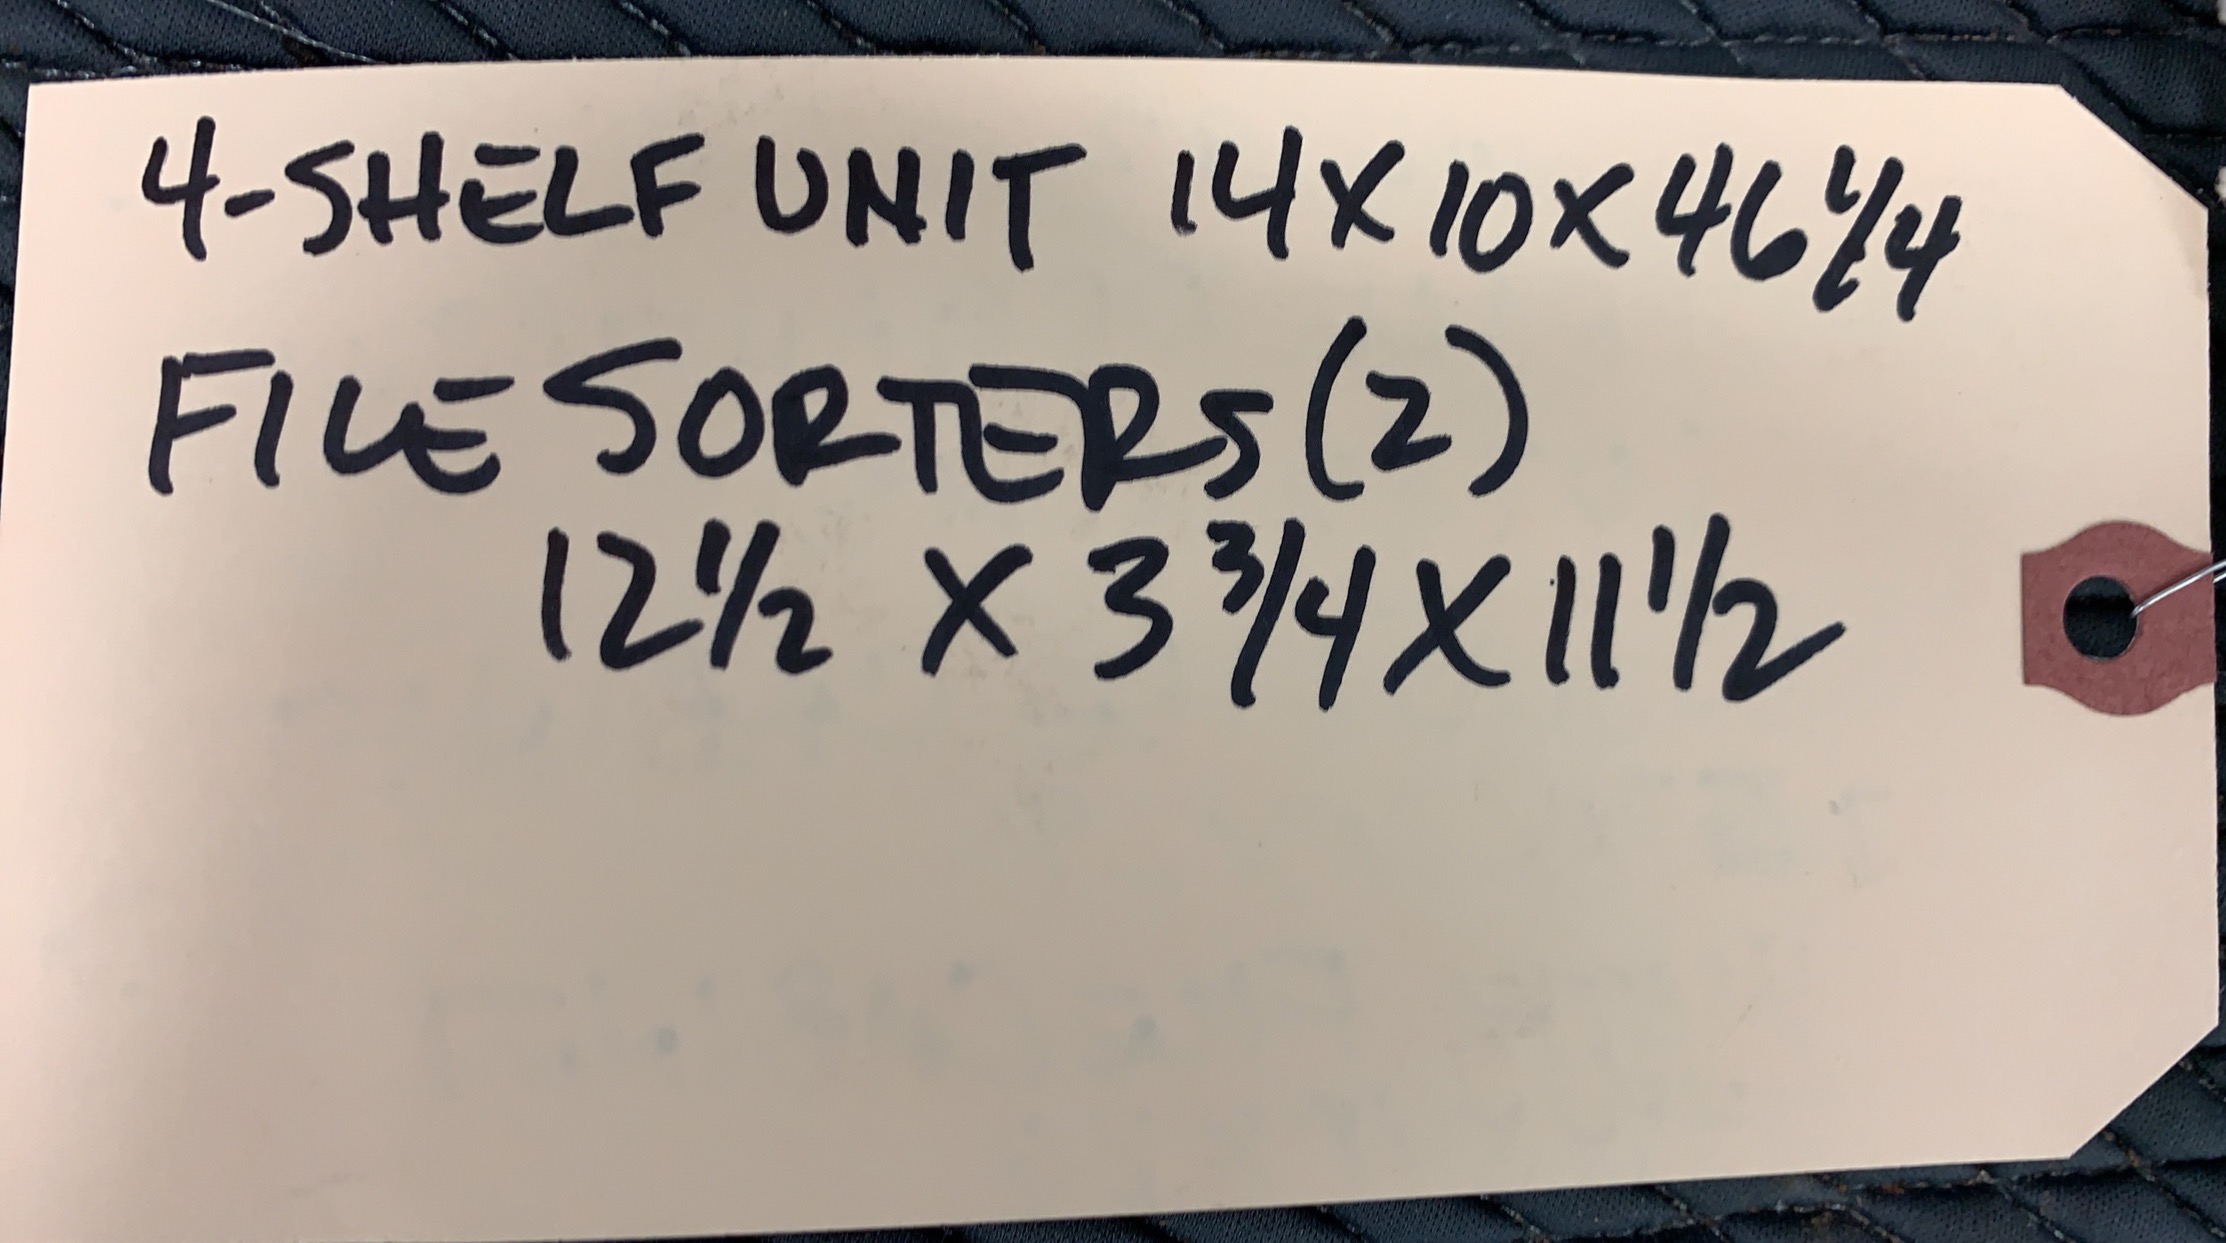 4-SHELF UNIT 14X10X46 1/4
FILE SORTERS (2)
12 1/2 X 3 3/4 X 11 1/2